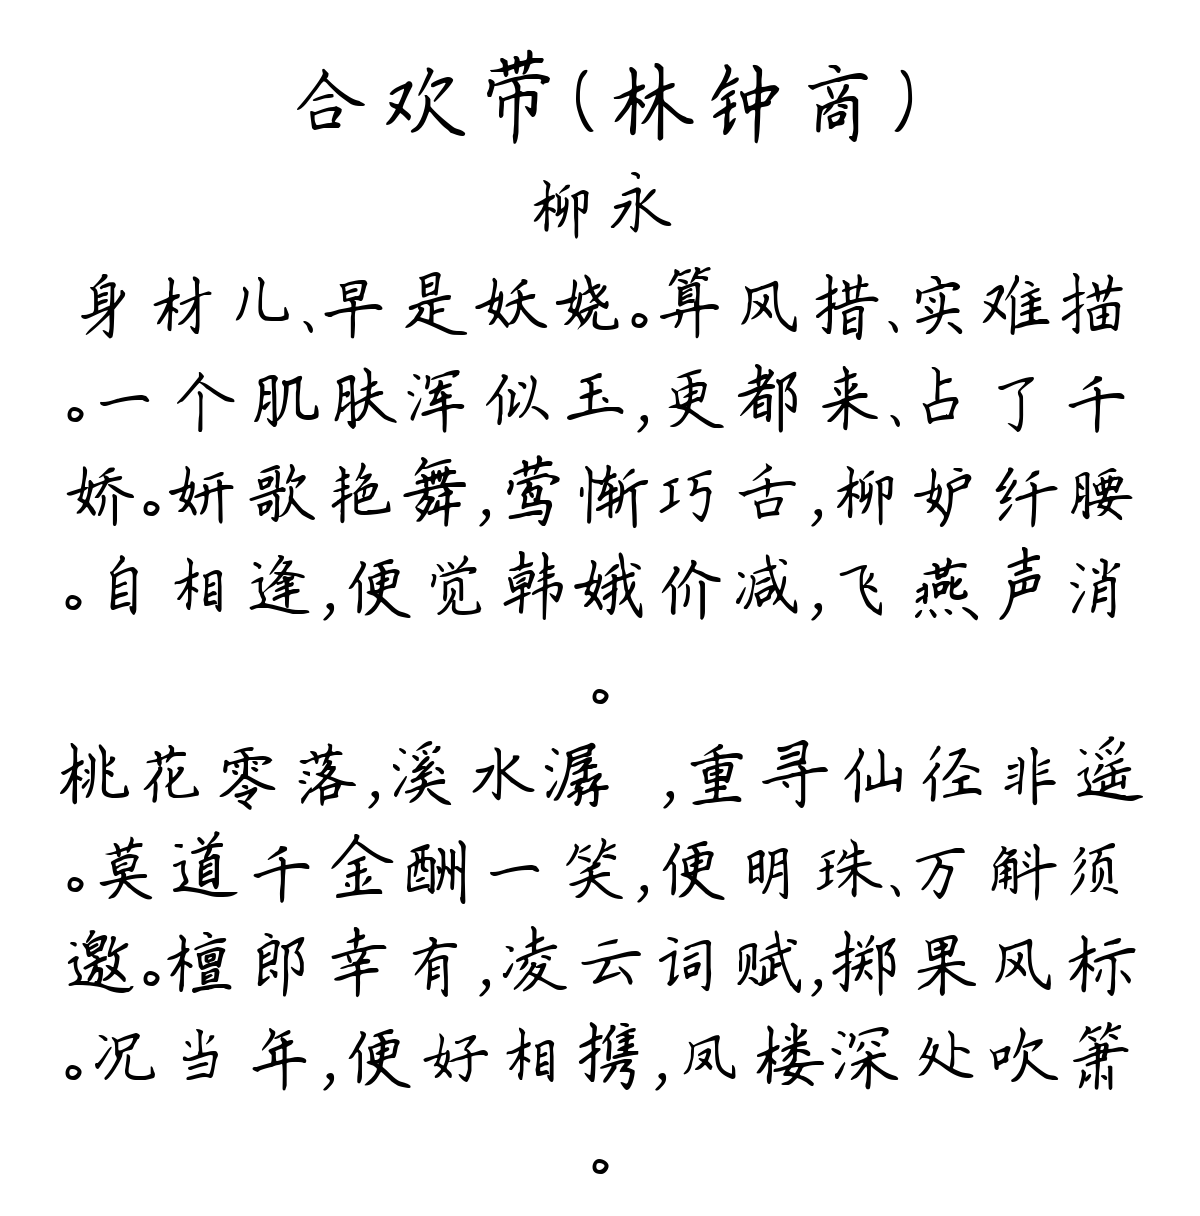 合欢带(林钟商)
柳永
身材儿、早是妖娆。算风措、实难描
。一个肌肤浑似玉,更都来、占了千
娇。妍歌艳舞,莺惭巧舌,柳妒纤腰
。自相逢,便觉韩娥价减,飞燕声消
。
桃花零落,溪水潺 ,重寻仙径非遥
。莫道千金酬一笑,便明珠、万斛须
邀。檀郎幸有,凌云词赋,掷果风标
。况当年,便好相携,凤楼深处吹箫
。